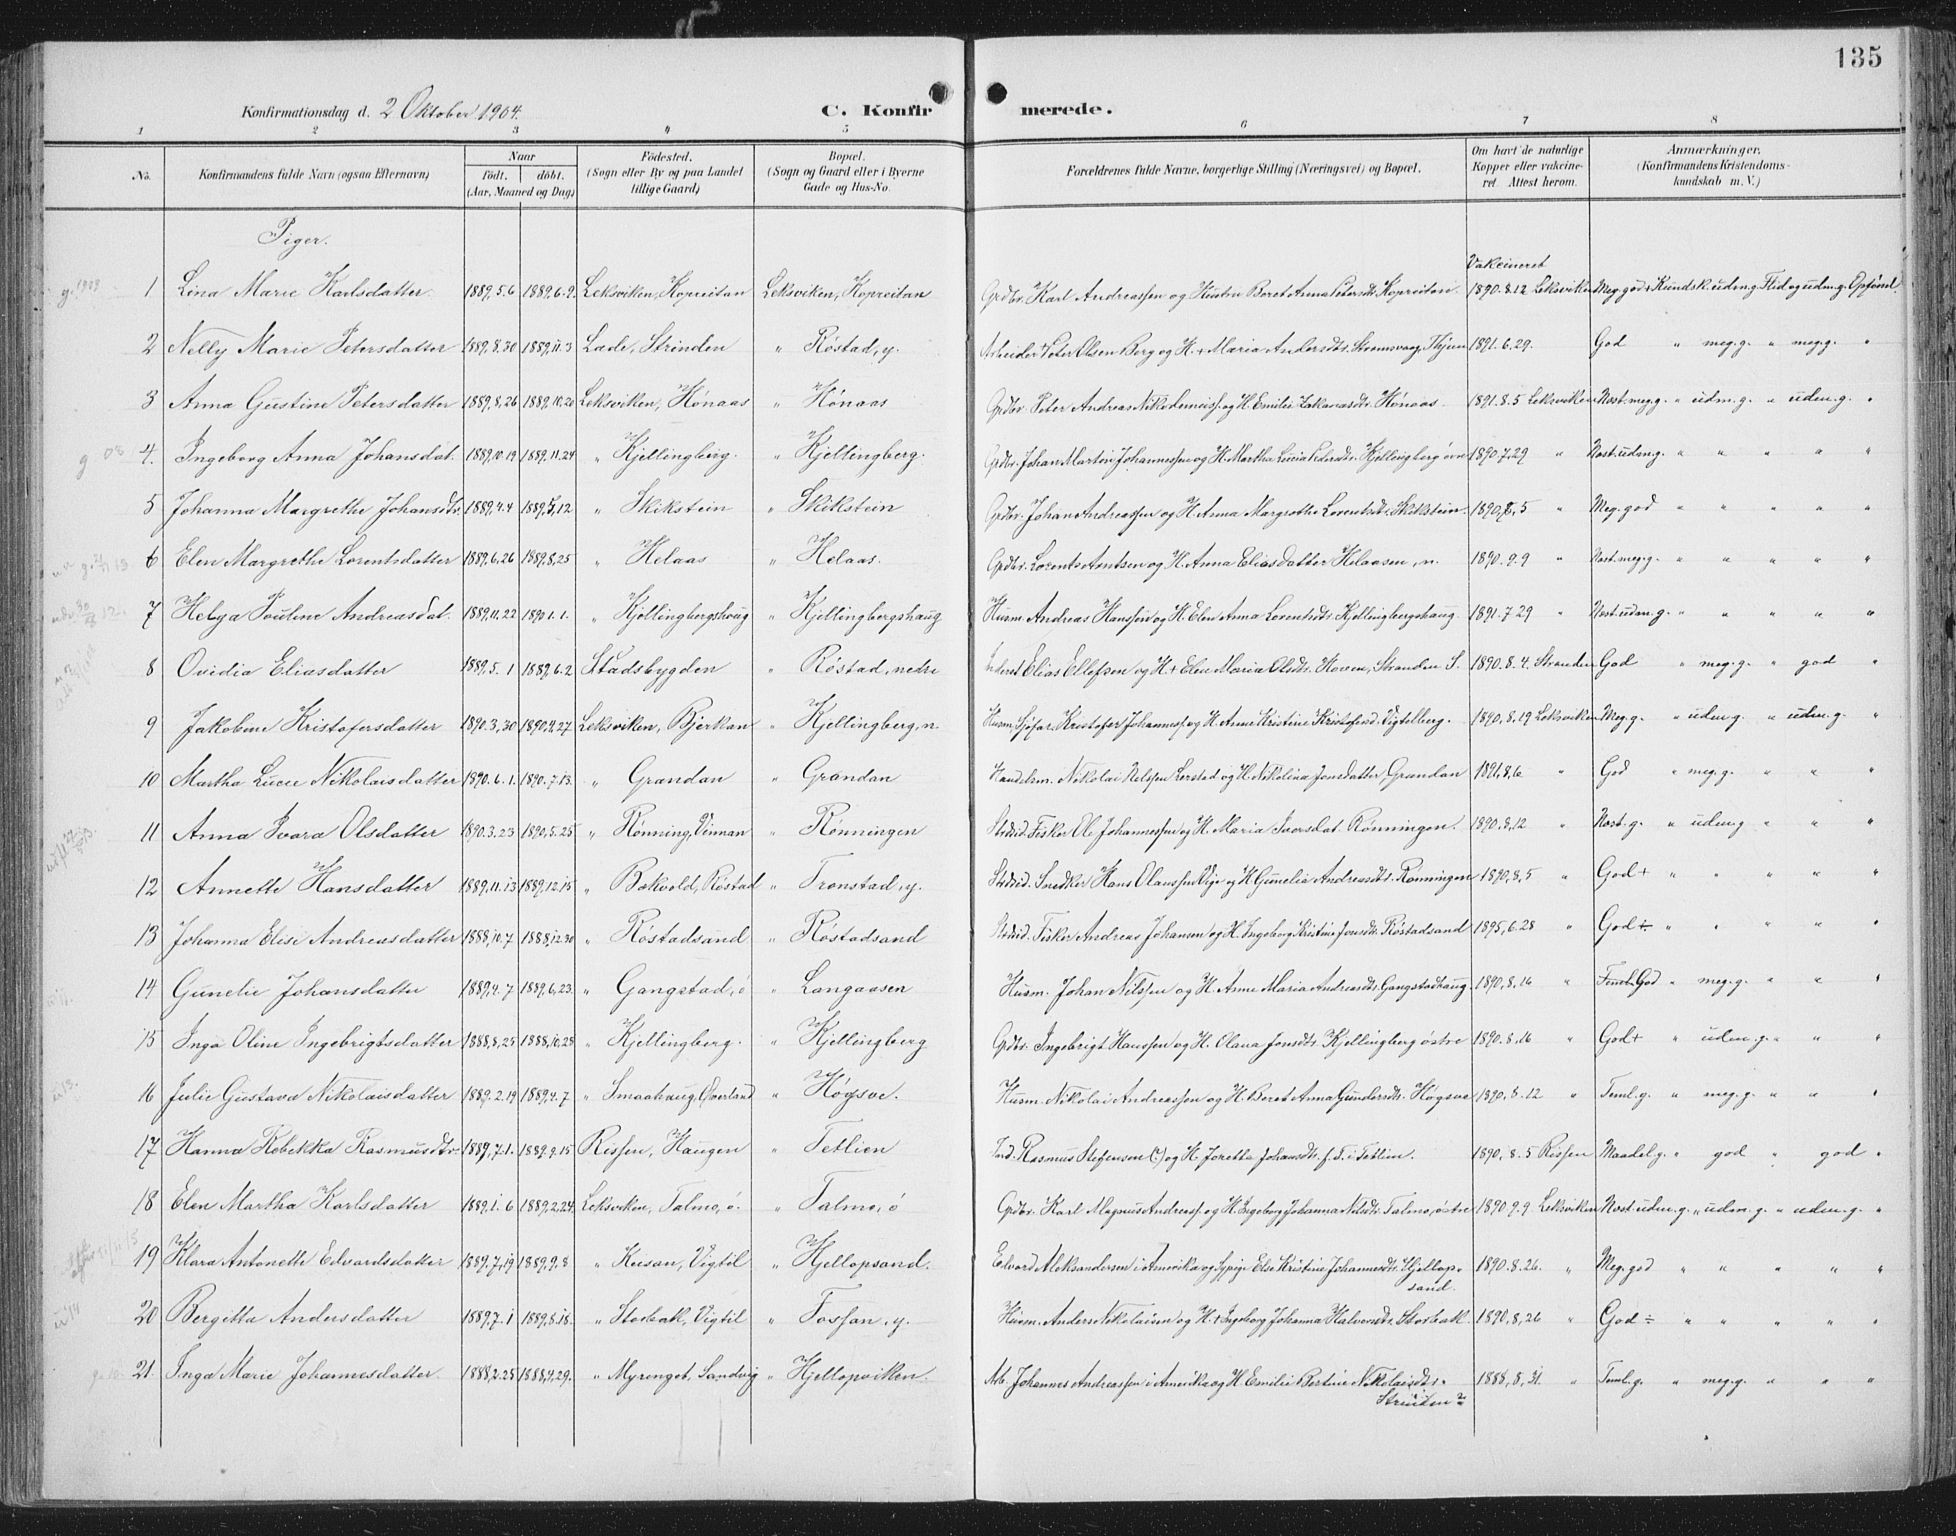 135
Konfirmationsdag d. 2 Oktober 1904. C. Konfirmerede.
1 2 3 4 5 6 7 8
No. Konfirmandens fulde Navn (ogsaa Efternavn) Naar født. døbt. (Aar, Maaned og Dag) Fødested. (Sogn eller By og paa Landet tillige Gaard) Bopæl. (Sogn og Gaard eller i Byerne Gade og Hus-No. Forældrenes fulde Navne, borgerlige Stilling (Næringsvei) og Bopæl. Om havt de naturlige Kopper eller vakcineret. Attest herom. Anmærkninger. (Konfirmandens Kristendomskundskab m. V.)
Piger.
Vakcineret
1 Lina Marie Karlsdatter 1889,5.6 1889.6.9. Leksviken, Kopreitan Leksviken, Kopreitan Grdbr. Karl Andreassen og Hustru Beret Anna Petersdt. Kopreitan 1890.8.12 Leksviken Meg. god + Kundsk. udm.g. Flid og udm.g. Opførsel
2 Nelly Marie Petersdatter 1889,8.30 1889,11.3 Lade, Strinden " Róstad, y. Arbeider Peter Olsen Berg og H. + Maria Andersdtr. 1891.6.29. God " meg.g. " meg.g. "
3 Anna Gustine Petersdatter 1889,8,26 1889,10.20 Leksviken, Hónaas " Hónaas Grdbr. Peter Andreas Nikodemussen og H. Emilie Hónaas. 1891.8.5 Leksviken Næst.meg.g. " udm.g. " udm.g. "
4. Ingeborg Anna Johansdat. 1889,10.19 1889.11.24 " Kjellingberg. " Kjellingberg. Grdbr. Johan Martin Johannessen og H. Martha Lucia Pedersdtr. Kjellingberg øvre 1890.7.29 " Næst.udm.g. " " " " "
5 Johanna Margrethe Johansdtr. 1889,4.4 1889,5,12 " Skikstein " Skikstein Grdbr. Johan Andreassen og H. Anna Margrethe Lorentsdtr. Skikstein. 1890,8,5 " Meg.god " " " " "
6 Elen Margrethe Lorentsdatter 1889,6,26 1889,8,25 " Helaas " Helaas. Grdbr. Lorents Arntsen og H. Anna Eliasdatter Helaasen, n. 1890.9.9 " Næst.meg.g. " " " " "
7 Helga Pauline Andreasdat. 1889,11.22 1890 1.1. " Kjellingbergshaug " Kjellingbergshaug Husm. Andreas Hanssen og H. Elen Anna Lorentsdtr. Kjellingbergshaug. 1891.7.29 " Næst.udm.g. " " " " "
8 Ovidia Eliasdatter 1889,5.1 1889,6.2 Stadsbygden " Róstad, nedre Elias Ellefsen og H + Elen Maria Olsdtr. Hoven, Stranden S. 1890.8.4. Stranden God " meg.g. " god "
9 Jakobine Kristofersdatter 1890.3,30 1890,4,27. Leksviken, Bjerkan " Kjellingberg, n. Husm, Sjøfar. Kristofer Johannessen og H. Anne Kristine Kristofersd. Vigtelberg. 1890.8.19 Leksviken Meg.g. " udm.g. " udm.g. "
10 Martha Lucie Nikolaisdatter 1890.6.1. 1890.7.13. " Grandan " Grandan Handelsm. Nikolai Nelssen Lerstad og H. Nikolina Jonsdatter, Grandan 1891,8,6 " God " meg.g. " " "
11 Anna Ivara Olsdatter 1890.3.23 1890,5.25 " Rønning, Vinnan " Rønningen Strdsid. Fisker Ole Johannessen og H. Maria Ivarsdat. Rønningen. 1890.8,12 " Næst.g. " udm.g " " "
12 Annette Hansdatter 1889,11.13 1889,12.15 " Bakvold, Róstad " Tronstad, y. Strdsid. Snedker Hans Olaussen Veje og H. Gunelia Andreasdtr. Rønningen 1890,8,5 " God+ " " " " "
13 Johanna Elise Andreasdatter 1888,10.7 1888,12.30 " Róstadsand " Róstadsand Strdsid. Fisker Andreas Johansen og H. Ingeborg Kristine Jonsdtr. Róstadsand 1895,6.28 " God÷ " " " " "
14 Gunelie Johansdatter 1889,4.7 1889,6,23. " Gangstad, ó " Langaasen Husm. Johan Nilssen og H. Anne Maria Andreasdtr. Gangstadhaug. 1890,8,16 " God " meg.g. " " "
15 Inga Oline Ingebrigtsdatter 1888,8,25 1888,10.28 " Kjellingberg. " Kjellingberg Grdbr. Ingebrigt Hanssen og H. Olava Jonsdtr. Kjellingberg østre 1890.8.16 " God+ " udm.g. " " "
16 Julie Gustava Nikolaisdatter 1889.2.19 1889,4.7 " Smaahaug, Øverland " Høgsve. Husm. Nikolai Andreassen og H. Beret Anna Gundersdtr. Høgsve 1890,8.12 " Teml.g. " meg.g. " " "
17 Hanna Rebekka Rasmusdtr. 1889,7.1. 1889.9.15 Rissen, Haugen " Tetlien Ind. Rasmus Stefensen (?) og H. Joretta Johansdtr. f. T. i Tetlien. 1890,8.5 Rissen Maadel.g. " god " god "
18 Elen Martha Karlsdatter 1889.1.6 1889,2.24 Leksviken, Talmo, ó. " Talmo, ó Grdbr. Karl Magnus Andreass. og H. Ingeborg Johanna Nilsdtr. Talmo, østre 1890 9.9 Leksviken Næst.udm.g. " udm.g. " udm.g. "
19 Klara Antonette Edvardsdatter 1889.7,19 1889,9.8 " Kusan, Vigtil " Hjellopsand. Edvard Aleksandersen i Amerika og Pige Else Kristine Johannesdtr. Hjellopsand. 1890.8.26. " Meg.god " " " " "
20 Bergitta Andersdatter 1889,7.1 1889,8.18. " Storbak, Vigtil " Fossan, y. Husm. Anders Nikolaisen og H + Ingeborg Johanna Halvorsdtr. Storbak. 1890,8,26 " God÷ " " " " "
21. Inga Marie Johannesdatter 1888,2.25 1888,4,29. " Myrenget, Sandvig " Hjellopviken. Arb. Johannes Andreassen i Amerika og H. Emilie Bertine Nikolaisdtr. 1888,8,31. " Teml.g. " meg.g. " " "